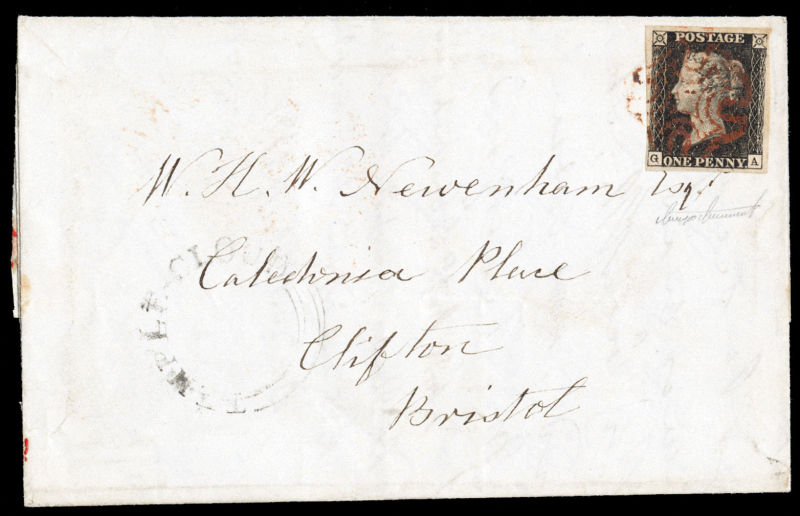 POSTAGE
G ONE PENNY. A
W. H. W. Newenham Esqr
TEMPLE-CLOUD
Caledonia Place
Clifton
Bristol